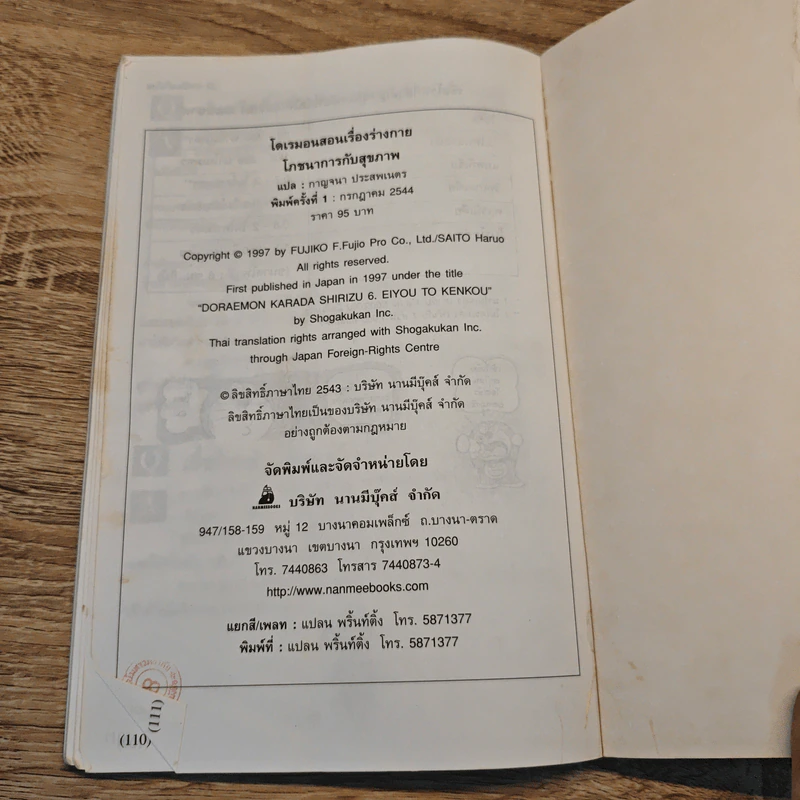 โดเรมอนสอนเรื่องร่างกาย
โภชนาการกับสุขภาพ
แปล : กาญจนา ประสพเนตร
พิมพ์ครั้งที่ 1 : กรกฎาคม 2544
ราคา 95 บาท
Copyright © 1997 by FUJIKO F.Fujio Pro Co., Ltd./SAITO Haruo
All rights reserved.
First published in Japan in 1997 under the title
"DORAEMON KARADA SHIRIZU 6. EIYOU TO KENKOU"
by Shogakukan Inc.
Thai translation rights arranged with Shogakukan Inc.
through Japan Foreign-Rights Centre
© ลิขสิทธิ์ภาษาไทย 2543 : บริษัท นานมีบุ๊คส์ จำกัด
ลิขสิทธิ์ภาษาไทยเป็นของบริษัท นานมีบุ๊คส์ จำกัด
อย่างถูกต้องตามกฎหมาย
จัดพิมพ์และจัดจำหน่ายโดย
NANMEEBOOKS บริษัท นานมีบุ๊คส์ จำกัด
947/158-159 หมู่ 12 บางนาคอมเพล็กซ์ ถ.บางนา-ตราด
แขวงบางนา เขตบางนา กรุงเทพฯ 10260
โทร. 7440863 โทรสาร 7440873-4
http://www.nanmeebooks.com
แยกสี/เพลท : แปลน พริ้นท์ติ้ง โทร. 5871377
พิมพ์ที่ : แปลน พริ้นท์ติ้ง โทร. 5871377
(111)
(110)